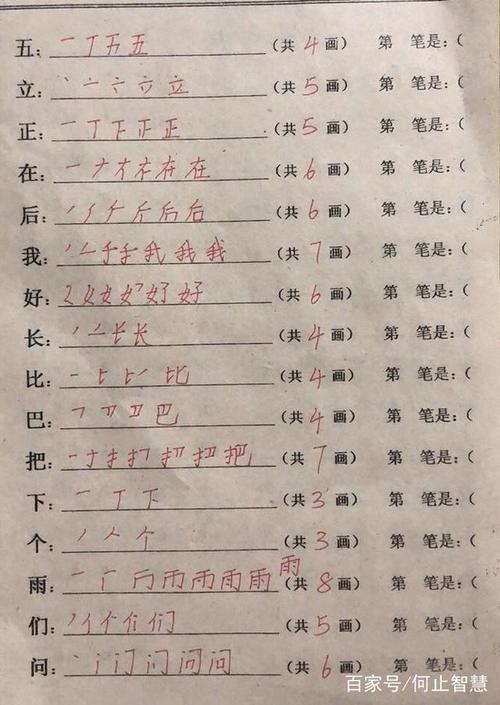 五：一丁五五（共4画） 第 笔是：（
立：丶亠亠立立（共5画） 第 笔是：（
正：一丁下正正（共5画） 第 笔是：（
在：一ナ才在在在（共6画） 第 笔是：（
后：后后（共6画） 第 笔是：（
我：我我我（共7画） 第 笔是：（
好：好好（共6画） 第 笔是：（
长：丿长长（共4画） 第 笔是：（
比：一比（共4画） 第 笔是：（
巴：巴（共4画） 第 笔是：（
把：一十扌把（共7画） 第 笔是：（
下：一丁下（共3画） 第 笔是：（
个：丿人个（共3画） 第 笔是：（
雨：一雨雨雨雨（共8画） 第 笔是：（
们：丿亻们们（共5画） 第 笔是：（
问：丶门问问（共6画） 第 笔是：（
百家号/何止智慧